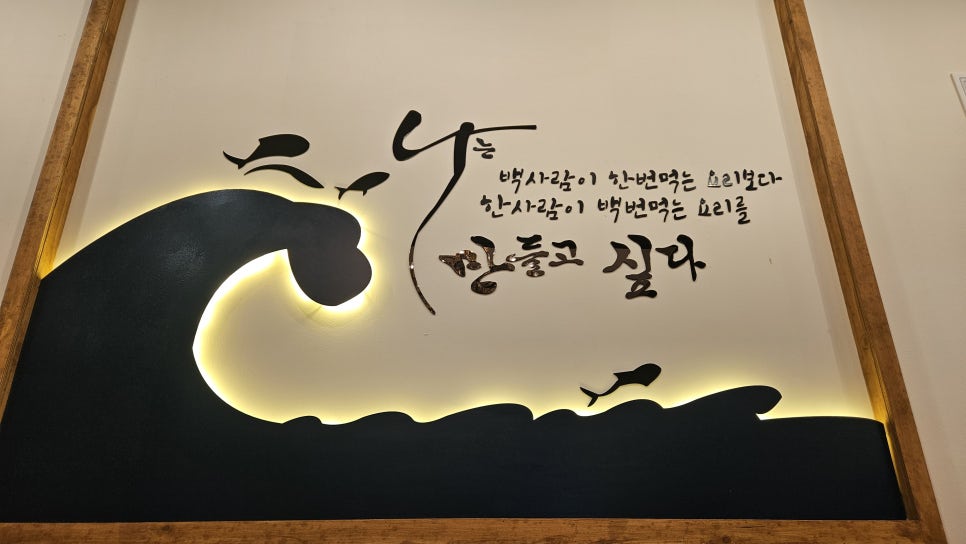 나는
백사람이 한번먹는 요리보다
한사람이 백번먹는 요리를
만들고 싶다